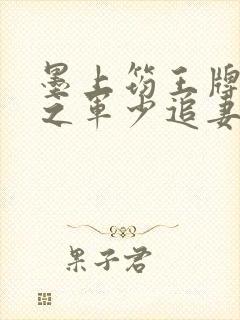 墨上筠王牌
之军少追妻
果子君